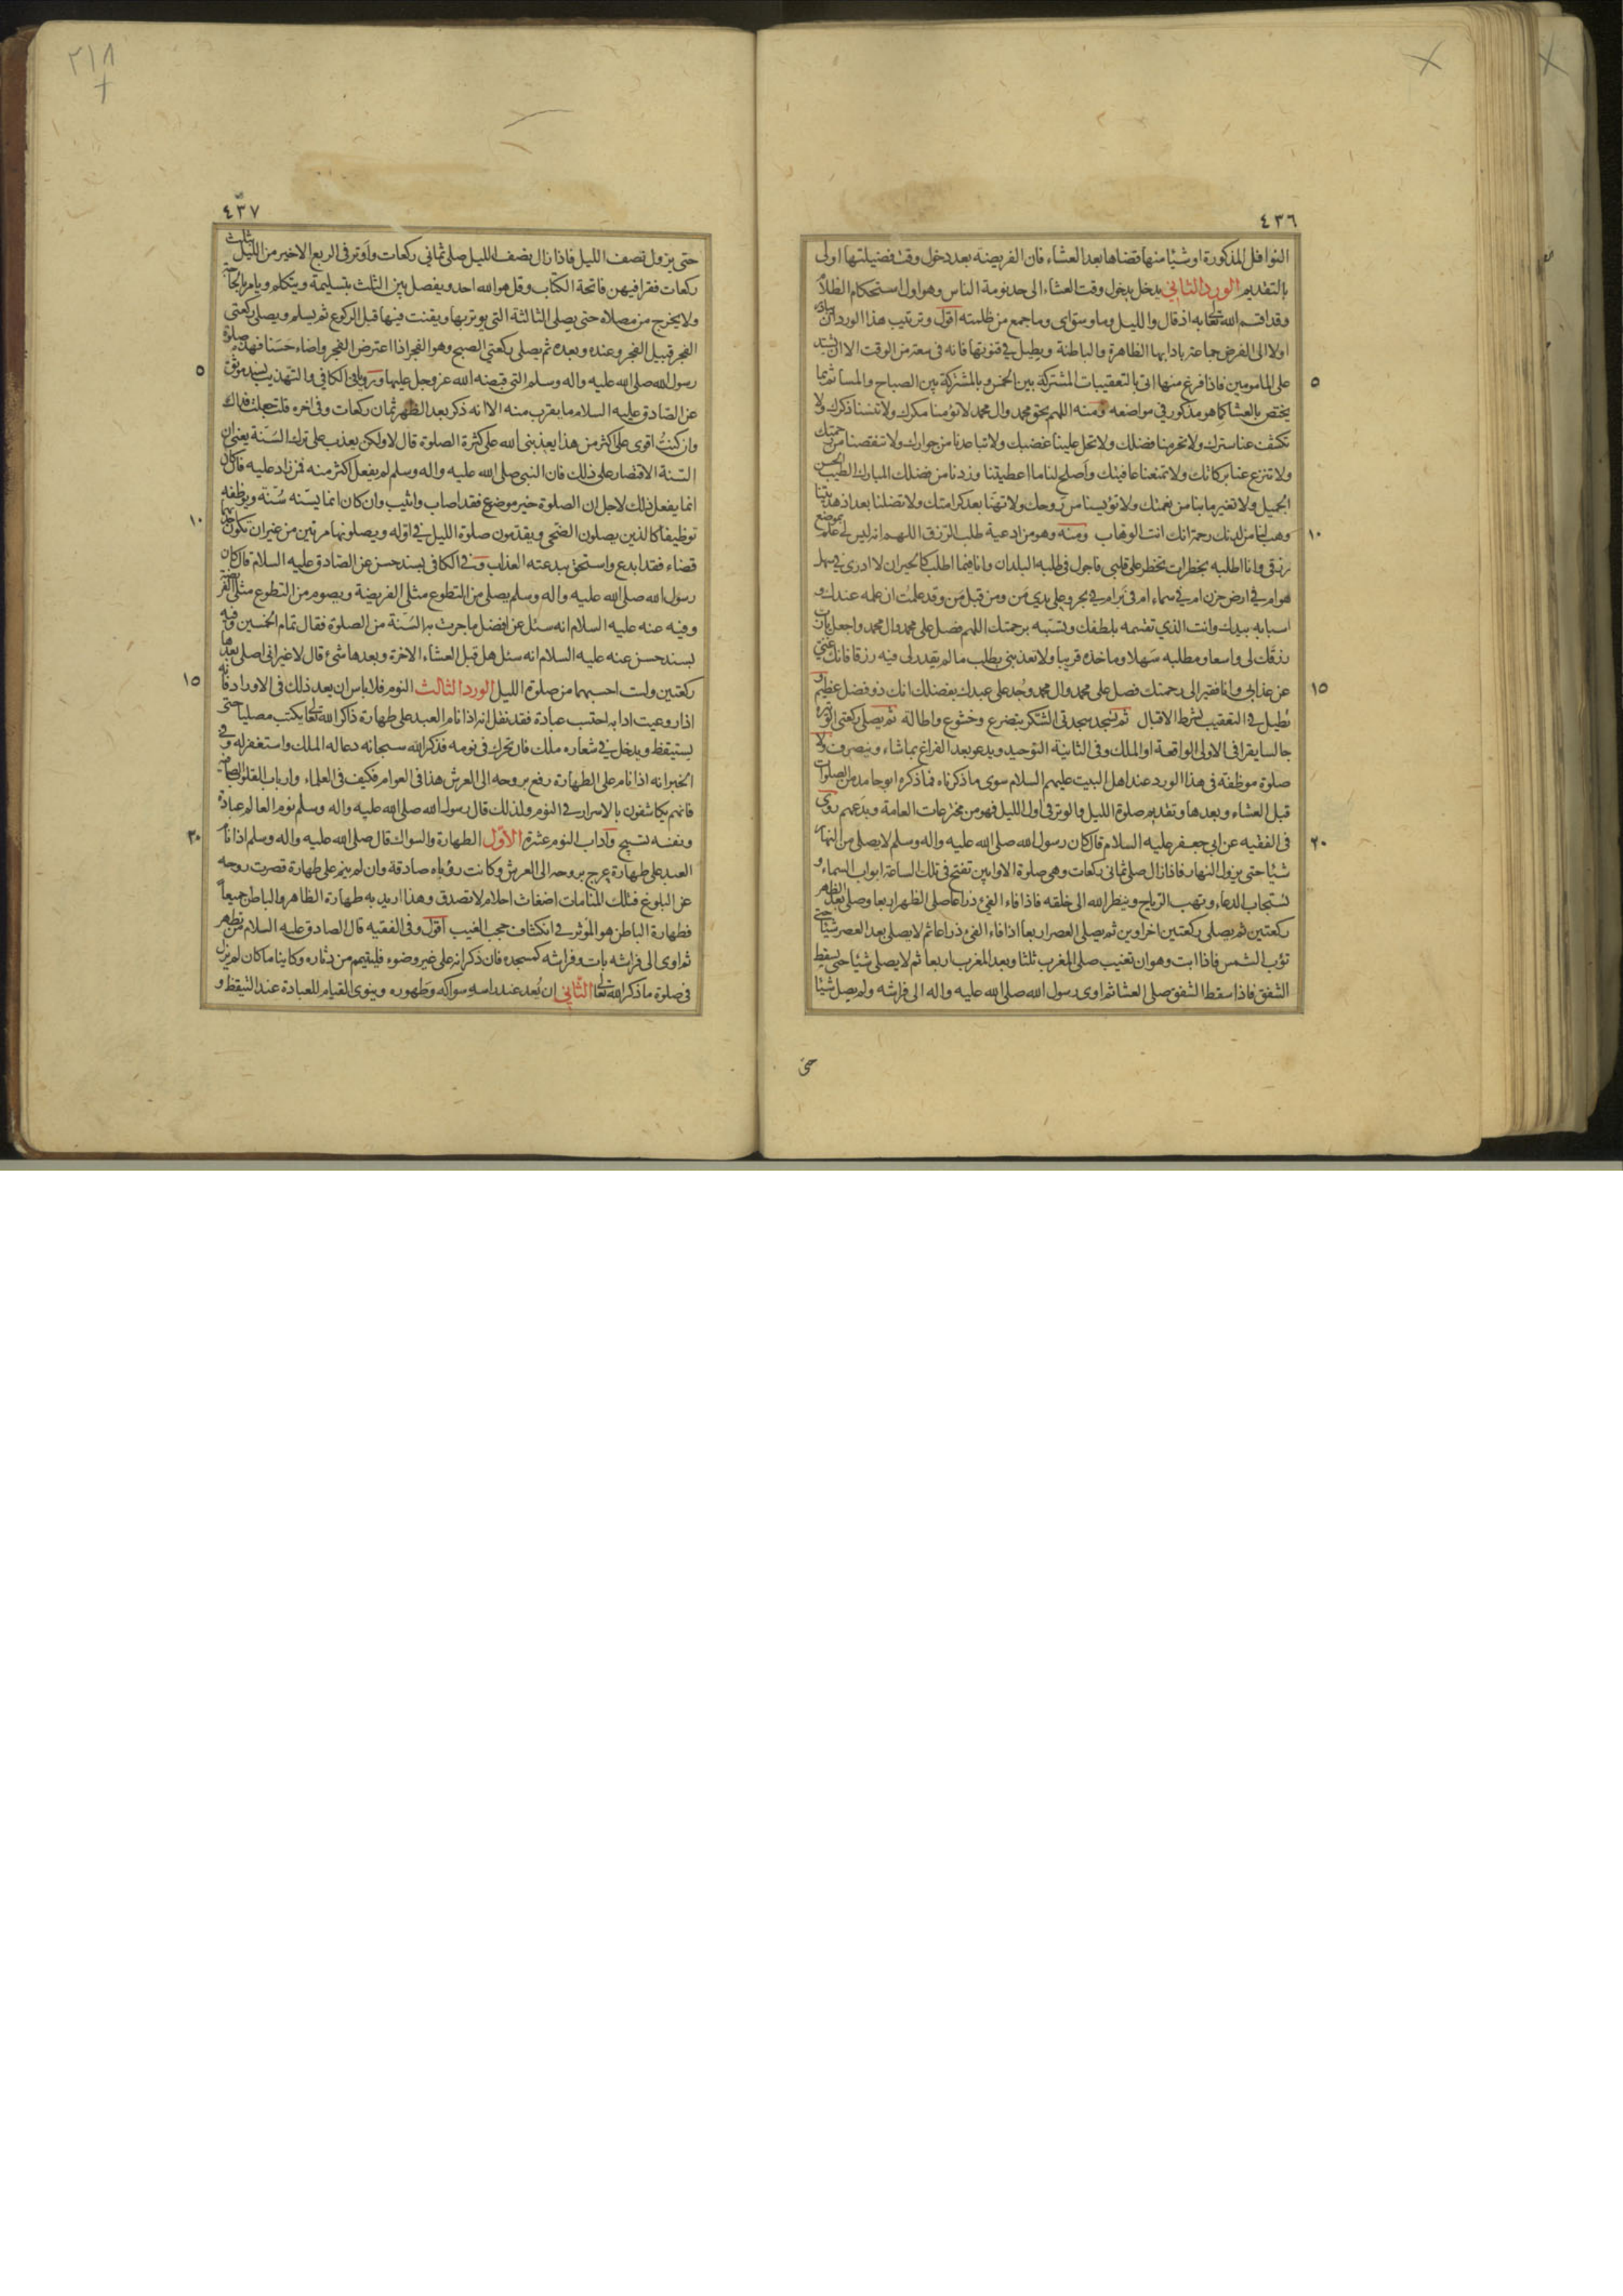 ٤٣٦
النوافل المذكورة او شيئا منها قضاها بعد العشاء فان الفريضة بعد دخول وقت فضيلتها اولى
بالتقديم الورد الثاني يدخل بدخول وقت العشاء الى حد نومة الناس وهو اول استحكام الظلام
وقد اقسم الله تعالى به اذ قال والليل وما وسق اى وما جمع من ظلمته اقول وترتيب هذا الورد ان
اولا الى الفرض جماعة باٰدابها الظاهرة والباطنة ويطيل في قنوتها فانه في من الوقت الا ان
على المامومين فاذا فرغ منها اتى بالتعقيبات المشتركة بين الخمس وبالمشتركة بين الصباح والمسا ثم بما
٥
يختص بالعشا كما هو مذكور في مواضعه ومنه اللهم بحق محمد وال محمد لا تؤمنا مكرك ولا تنسنا ذكرك ولا
تكشف عنا سترك ولا تحرمنا فضلك ولا تحل علينا غضبك ولا تباعدنا من جوارك ولا تنقصنا من رحمتك
ولا تنزع عنا بركاتك ولا تمنعنا عافيتك واصلح لنا ما اعطيتنا وزدنا من فضلك المبارك الطيب الحسن
الجميل ولا تغير ما بنا من نعمتك ولا تؤيسنا من روحك ولا تهنا بعد كرامتك ولا تضلنا بعد اذ هديتنا
وهب لنا من لدنك رحمة انك انت الوهاب ومنه وهو من ادعية طلب الرزق اللهم انه ليس لي علم بموضع
١٠
رزقي وانا اطلبه بخطرات تخطر على قلبي فاجول في طلبه البلدان وانا فيما اطلب كالحيران لا ادرى في سهل
هو ام في ارض حزن ام في سماء ام في بر ام في بحر وعلى يدي من ومن قبل من وقد علمت ان علمه عندك و
اسبابه بيدك وانت الذي تقسمه بلطفك وتسببه برحمتك اللهم فصل على محمد وال محمد واجعل يا رب
رزقك لي واسعا ومطلبه سهلا وماخذه قريبا ولا تعذبني بطلب ما لم تقدر لي فيه رزقا فانك غني
عن عذابي وانا فقير الى رحمتك فصل على محمد وال محمد وجد على عبدك بفضلك انك ذو فضل عظيم و
١٥
يطيل في التعقيب بشرط الاقبال ثم يسجد سجدتي الشكر بتضرع وخشوع واطالة ثم يصلي ركعتي الوتيرة
جالسا يقرا في الاولى الواقعة او الملك وفي الثانية التوحيد ويدعو بعد الفراغ بما شاء وينصرف ولا
صلوة موظفة في هذا الورد عند اهل البيت عليهم السلام سوى ما ذكرناه فما ذكره ابو حامد من الصلوات
قبل العشاء وبعدها وتقديم صلوة الليل والوتر في اول الليل فهو من مخترعات العامة وبدعهم روى
في الفقيه عن ابي جعفر عليه السلام قال كان رسول الله صلى الله عليه واله وسلم لا يصلي من النهار
٢٠
شيئا حتى يزول النهار فاذا زال صلى ثماني ركعات وهي صلوة الاوابين تفتح في تلك الساعة ابواب السماء و
تستجاب الدعاء وتهب الرياح وينظر الله الى خلقه فاذا فاء الفئ ذراعا صلى الظهر اربعا وصلى بعد الظهر
ركعتين ثم يصلي ركعتين اخراوين ثم يصلي العصر اربعا اذا فاء الفئ ذراعا ثم لا يصلي بعد العصر شيئا حتى
تؤب الشمس فاذا ابت وهو ان تغيب صلى المغرب ثلثا وبعد المغرب اربعا ثم لا يصلي شيئا حتى يسقط
الشفق فاذا سقط الشفق صلى العشا ثم اوى رسول الله صلى الله عليه واله الى فراشه ولم يصل شيئا
حتى
٢١٨
٤٣٧
حتى يزول نصف الليل فاذا زال نصف الليل صلى ثماني ركعات واوتر في الربع الاخير من الليل بثلث
ركعات فقرا فيهن فاتحة الكتاب وقل هو الله احد ويفصل بين الثلث بتسليمة ويتكلم ويامر بالحاجة
ولا يخرج من مصلاه حتى يصلي الثالثة التي يوتر بها ويقنت فيها قبل الركوع ثم يسلم ويصلي ركعتي
الفجر قبيل الفجر وعنده وبعده ثم يصلي ركعتي الصبح وهو الفجر اذا اعترض الفجر واضاء حسنا فهذه صلوة
رسول الله صلى الله عليه واله وسلم التي قبضه الله عز وجل عليها وروى في الكافي والتهذيب بسند موثق
٥
عن الصادق عليه السلام ما يقرب منه الا انه ذكر بعد الظهر ثمان ركعات وفي اخره قلت جعلت فداك
وان كنت اقوى على اكثر من هذا يعذبني الله على كثرة الصلوة قال لا ولكن يعذب على ترك السنة يعني ان
السنة الاقتصار على ذلك فان النبي صلى الله عليه واله وسلم لم يفعل اكثر منه فمن زاد عليه فان كان
انما يفعل ذلك لاجل ان الصلوة خير موضوع فقد اصاب واثيب وان كان انما يسنه سنة ويوظفه
توظيفا كالذين يصلون الضحى ويقدمون صلوة الليل في اوله ويصلونها مرتين من غير ان تكون
١٠
قضاء فقد ابدع واستحق ببدعته العذاب وفي الكافي بسند حسن عن الصادق عليه السلام قال كان
رسول الله صلى الله عليه واله وسلم يصلي من التطوع مثلي الفريضة ويصوم من التطوع مثلي الفريضة
وفيه عنه عليه السلام انه سئل عن افضل ما جرت به السنة من الصلوة فقال تمام الخمسين وفيه
بسند حسن عنه عليه السلام انه سئل هل قبل العشاء الاخرة وبعدها شئ قال لا غير اني اصلي بعدها
ركعتين ولست احسبهما من صلوة الليل الورد الثالث النوم فلا باس ان يعد ذلك في الاوراد فانه
١٥
اذا روعيت ادابه احتسب عبادة فقد نقل انه اذا نام العبد على طهارة ذاكرا لله تعالى يكتب مصليا حتى
يستيقظ ويدخل في شعاره ملك فان تحرك في نومه فذكر الله سبحانه دعا له الملك واستغفر له وفي
الخبر انه اذا نام على الطهارة رفع بروحه الى العرش هذا في العوام فكيف في العلماء وارباب القلوب الصافية
فانهم يكاشفون بالاسرار في النوم ولذلك قال رسول الله صلى الله عليه واله وسلم نوم العالم عبادة
ونفسه تسبيح واداب النوم عشرة الاول الطهارة والسواك قال صلى الله عليه واله وسلم اذا نام
٢٠
العبد على طهارة عرج بروحه الى العرش وكانت رؤياه صادقة وان لم ينم على طهارة قصرت روحه
عن البلوغ فتلك المنامات اضغاث احلام لا تصدق وهذا اريد به طهارة الظاهر والباطن جميعا
فطهارة الباطن هو المؤثر في انكشاف حجب الغيب اقول وفي الفقيه قال الصادق عليه السلام من تطهر
ثم اوى الى فراشه بات وفراشه كمسجده فان ذكر انه على غير وضوء فليتيمم من دثاره وكاينا ما كان لم يزل
في صلوة ما ذكر الله تعالى الثاني ان يعد عند راسه سواكه وطهوره وينوى القيام للعبادة عند التيقظ و